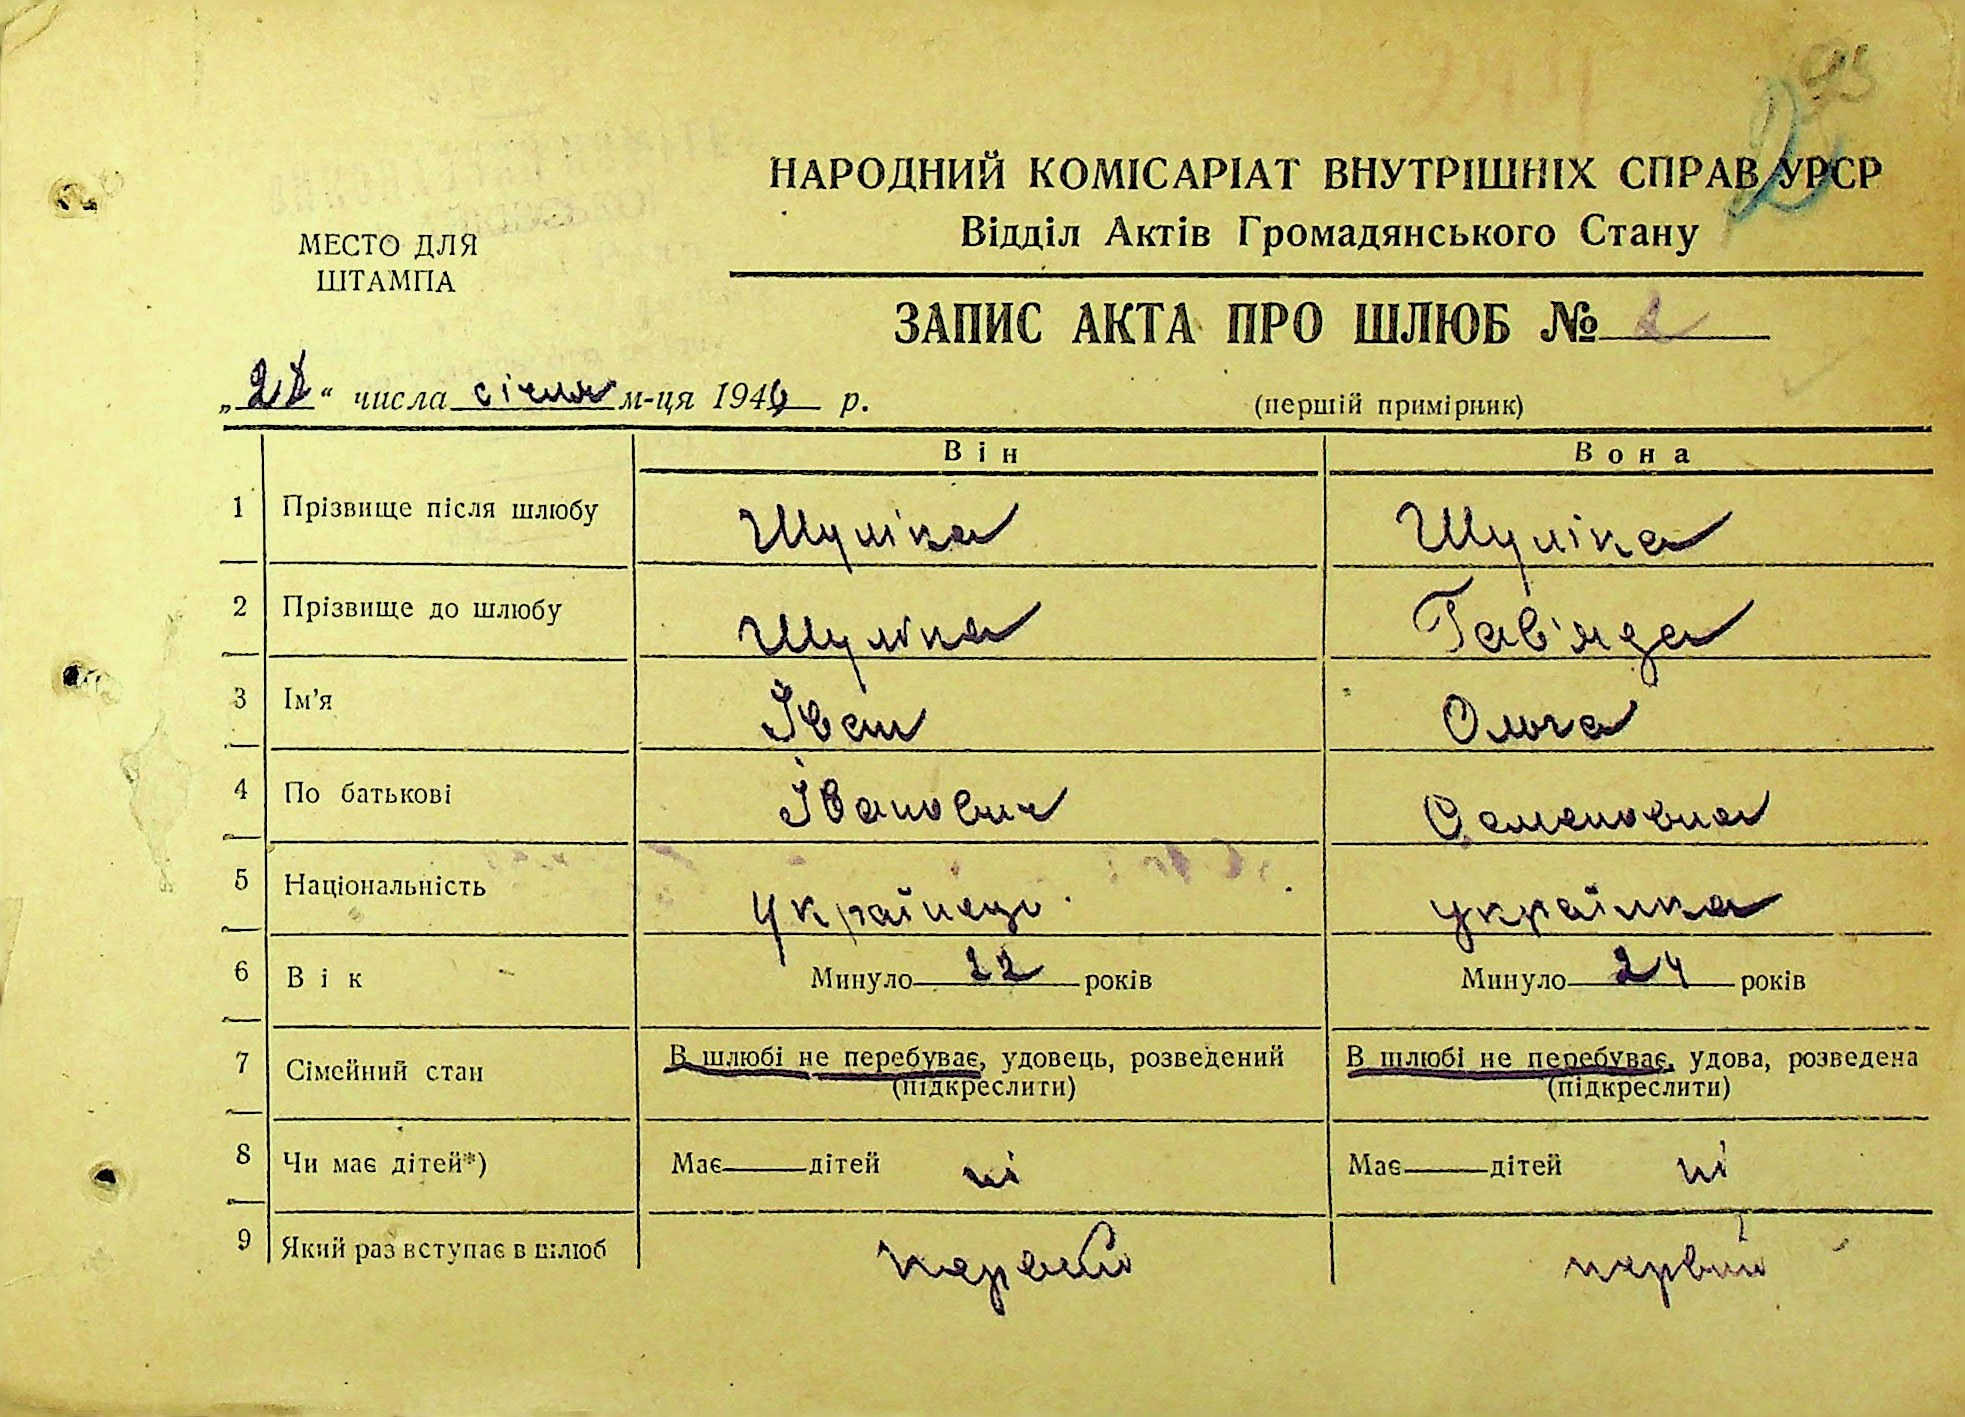 НАРОДНИЙ КОМІСАРІАТ ВНУТРІШНІХ СПРАВ УРСР
Відділ Актів Громадянського Стану
МЕСТО ДЛЯ
ШТАМПА
ЗАПИС АКТА ПРО ШЛЮБ № 2
" числа січня м-ця 194 р.
(першій примірник)
Він Вона
1 Прізвище після шлюбу Шуліка Шуліка
2 Прізвище до шлюбу Шуліка Гав'яда
3 Ім'я Іван Ольга
4 По батькові Іванович Семеновна
5 Національність українець українка
6 Вік Минуло 22 років Минуло 24 років
7 Сімейний стан В шлюбі не перебуває, удовець, розведений В шлюбі не перебуває, удова, розведена
(підкреслити) (підкреслити)
8 Чи має дітей*) Має дітей ні Має дітей ні
9 Який раз вступає в шлюб первий первий